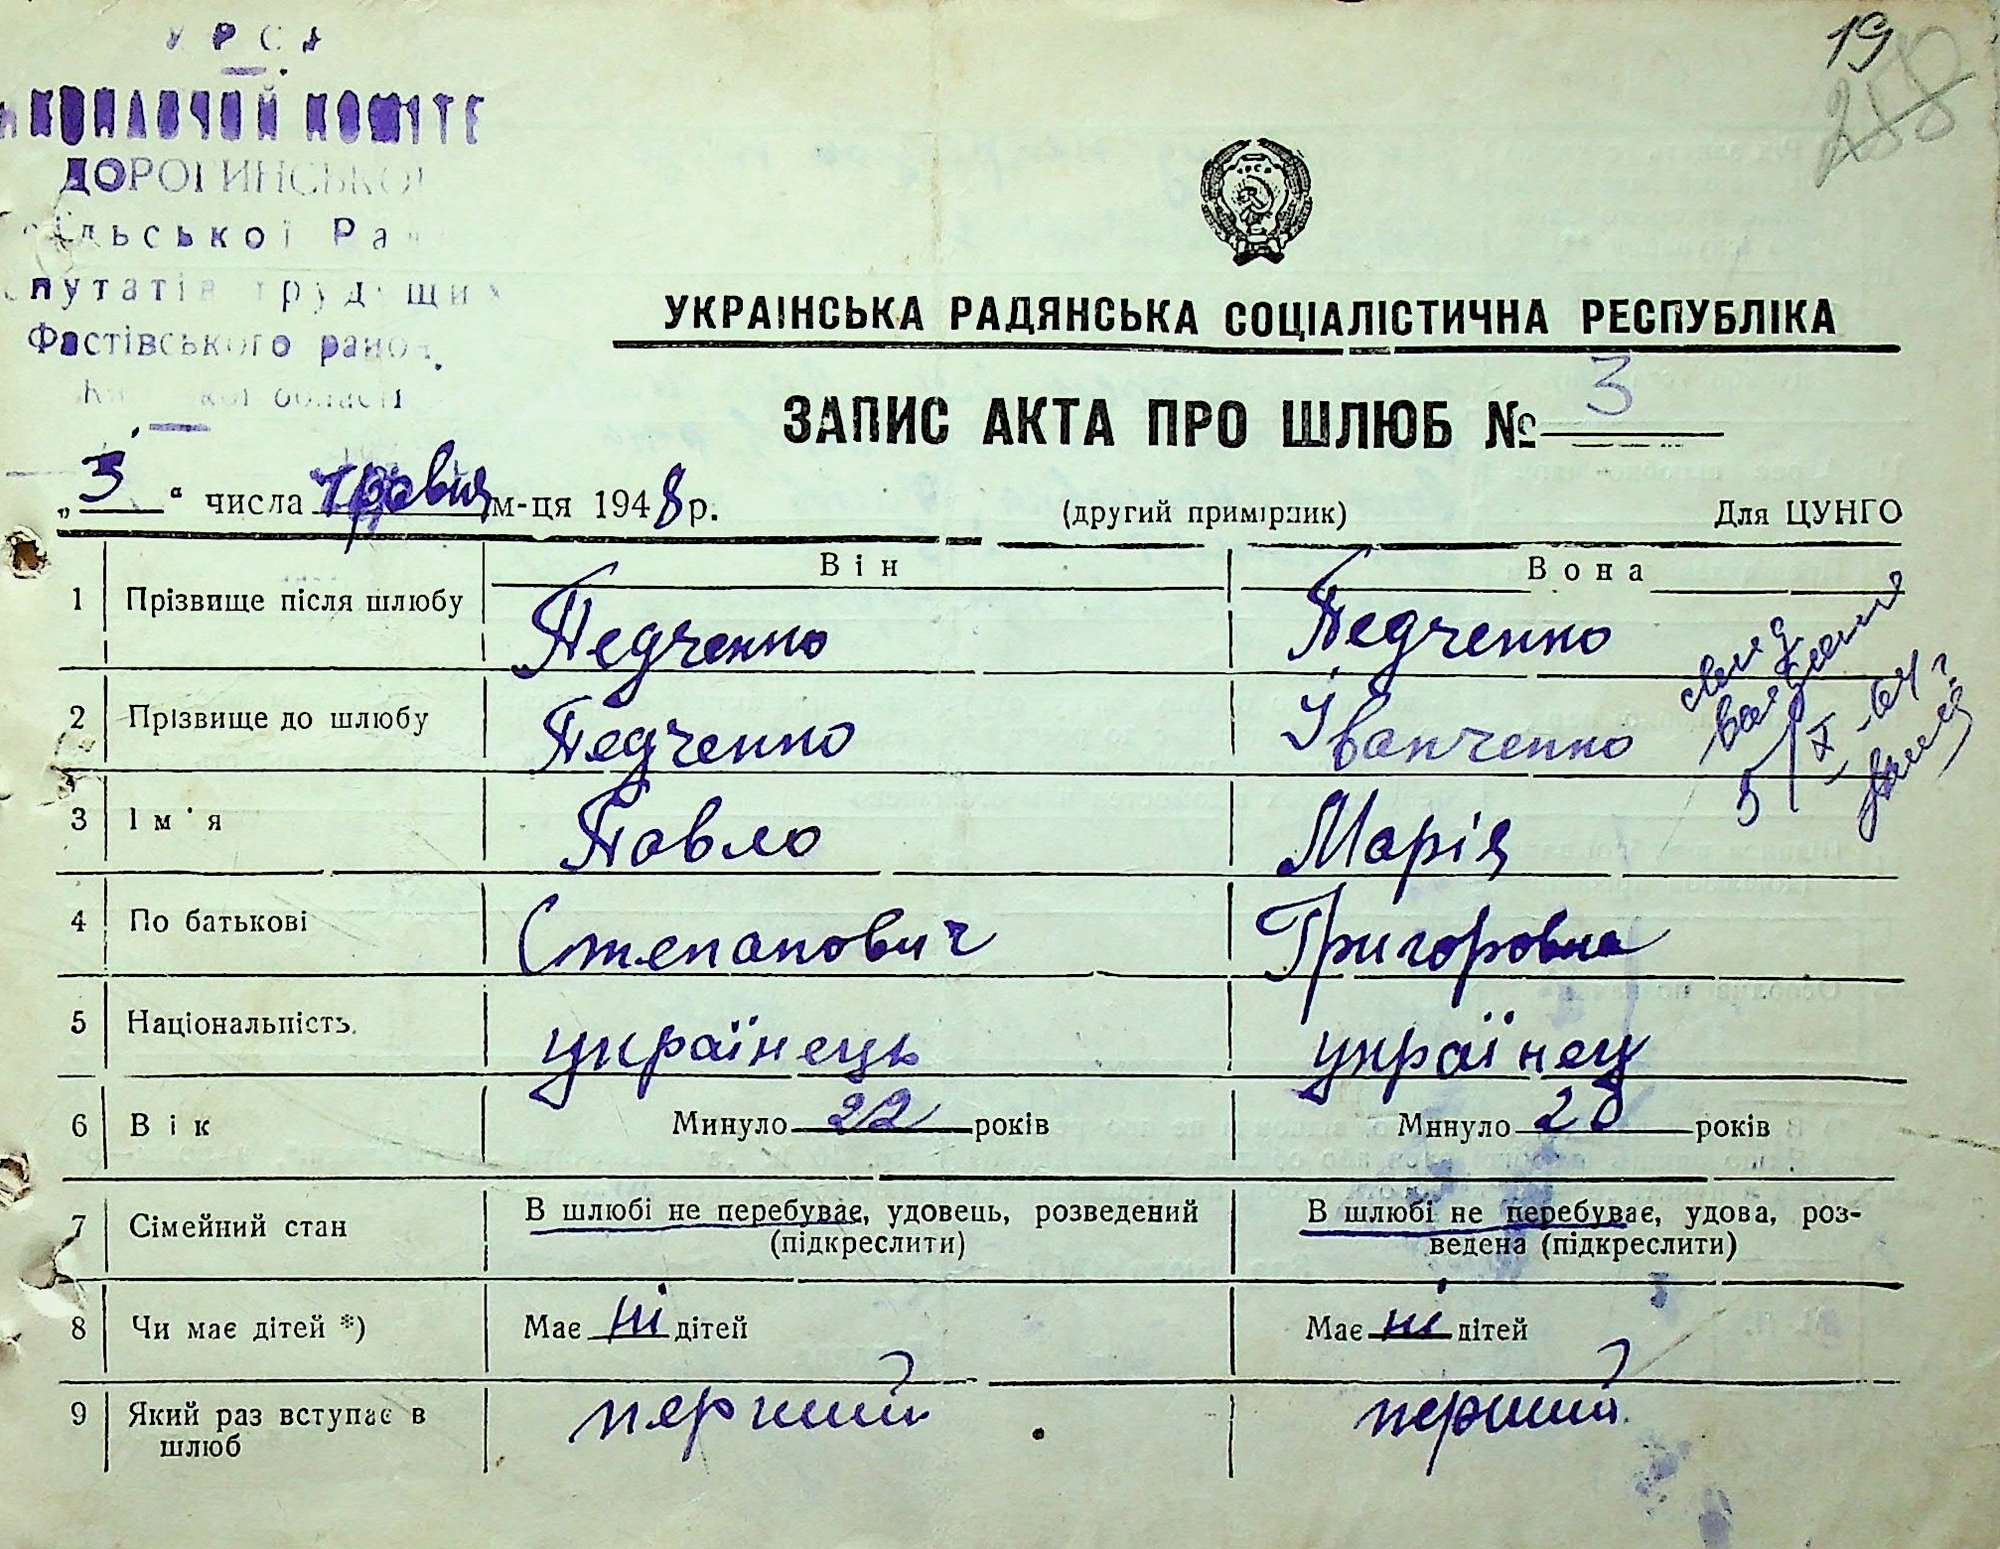 19
258
УРСР
ИКОНАВЧИЙ КОМІТЕ
ДОРОГИНСЬКОЇ
сільської Рад
путатів трудящих
Фастівського район.
Київської області
УКРАЇНСЬКА РАДЯНСЬКА СОЦІАЛІСТИЧНА РЕСПУБЛІКА
ЗАПИС АКТА ПРО ШЛЮБ № 3
„3“ числа травня м-ця 1948 р. (другий примірник) Для ЦУНГО
Він Вона
1 Прізвище після шлюбу Педченко Педченко
2 Прізвище до шлюбу Педченко Іванченко
5/X-64 г.
3 Ім'я Павло Марія
4 По батькові Степанович Григоровна
5 Національність українець українец
6 Вік Минуло 22 років Минуло 20 років
7 Сімейний стан В шлюбі не перебуває, удовець, розведений (підкреслити) В шлюбі не перебуває, удова, роз-
ведена (підкреслити)
8 Чи має дітей *) Має ні дітей Має ні дітей
9 Який раз вступає в перший перший
шлюб